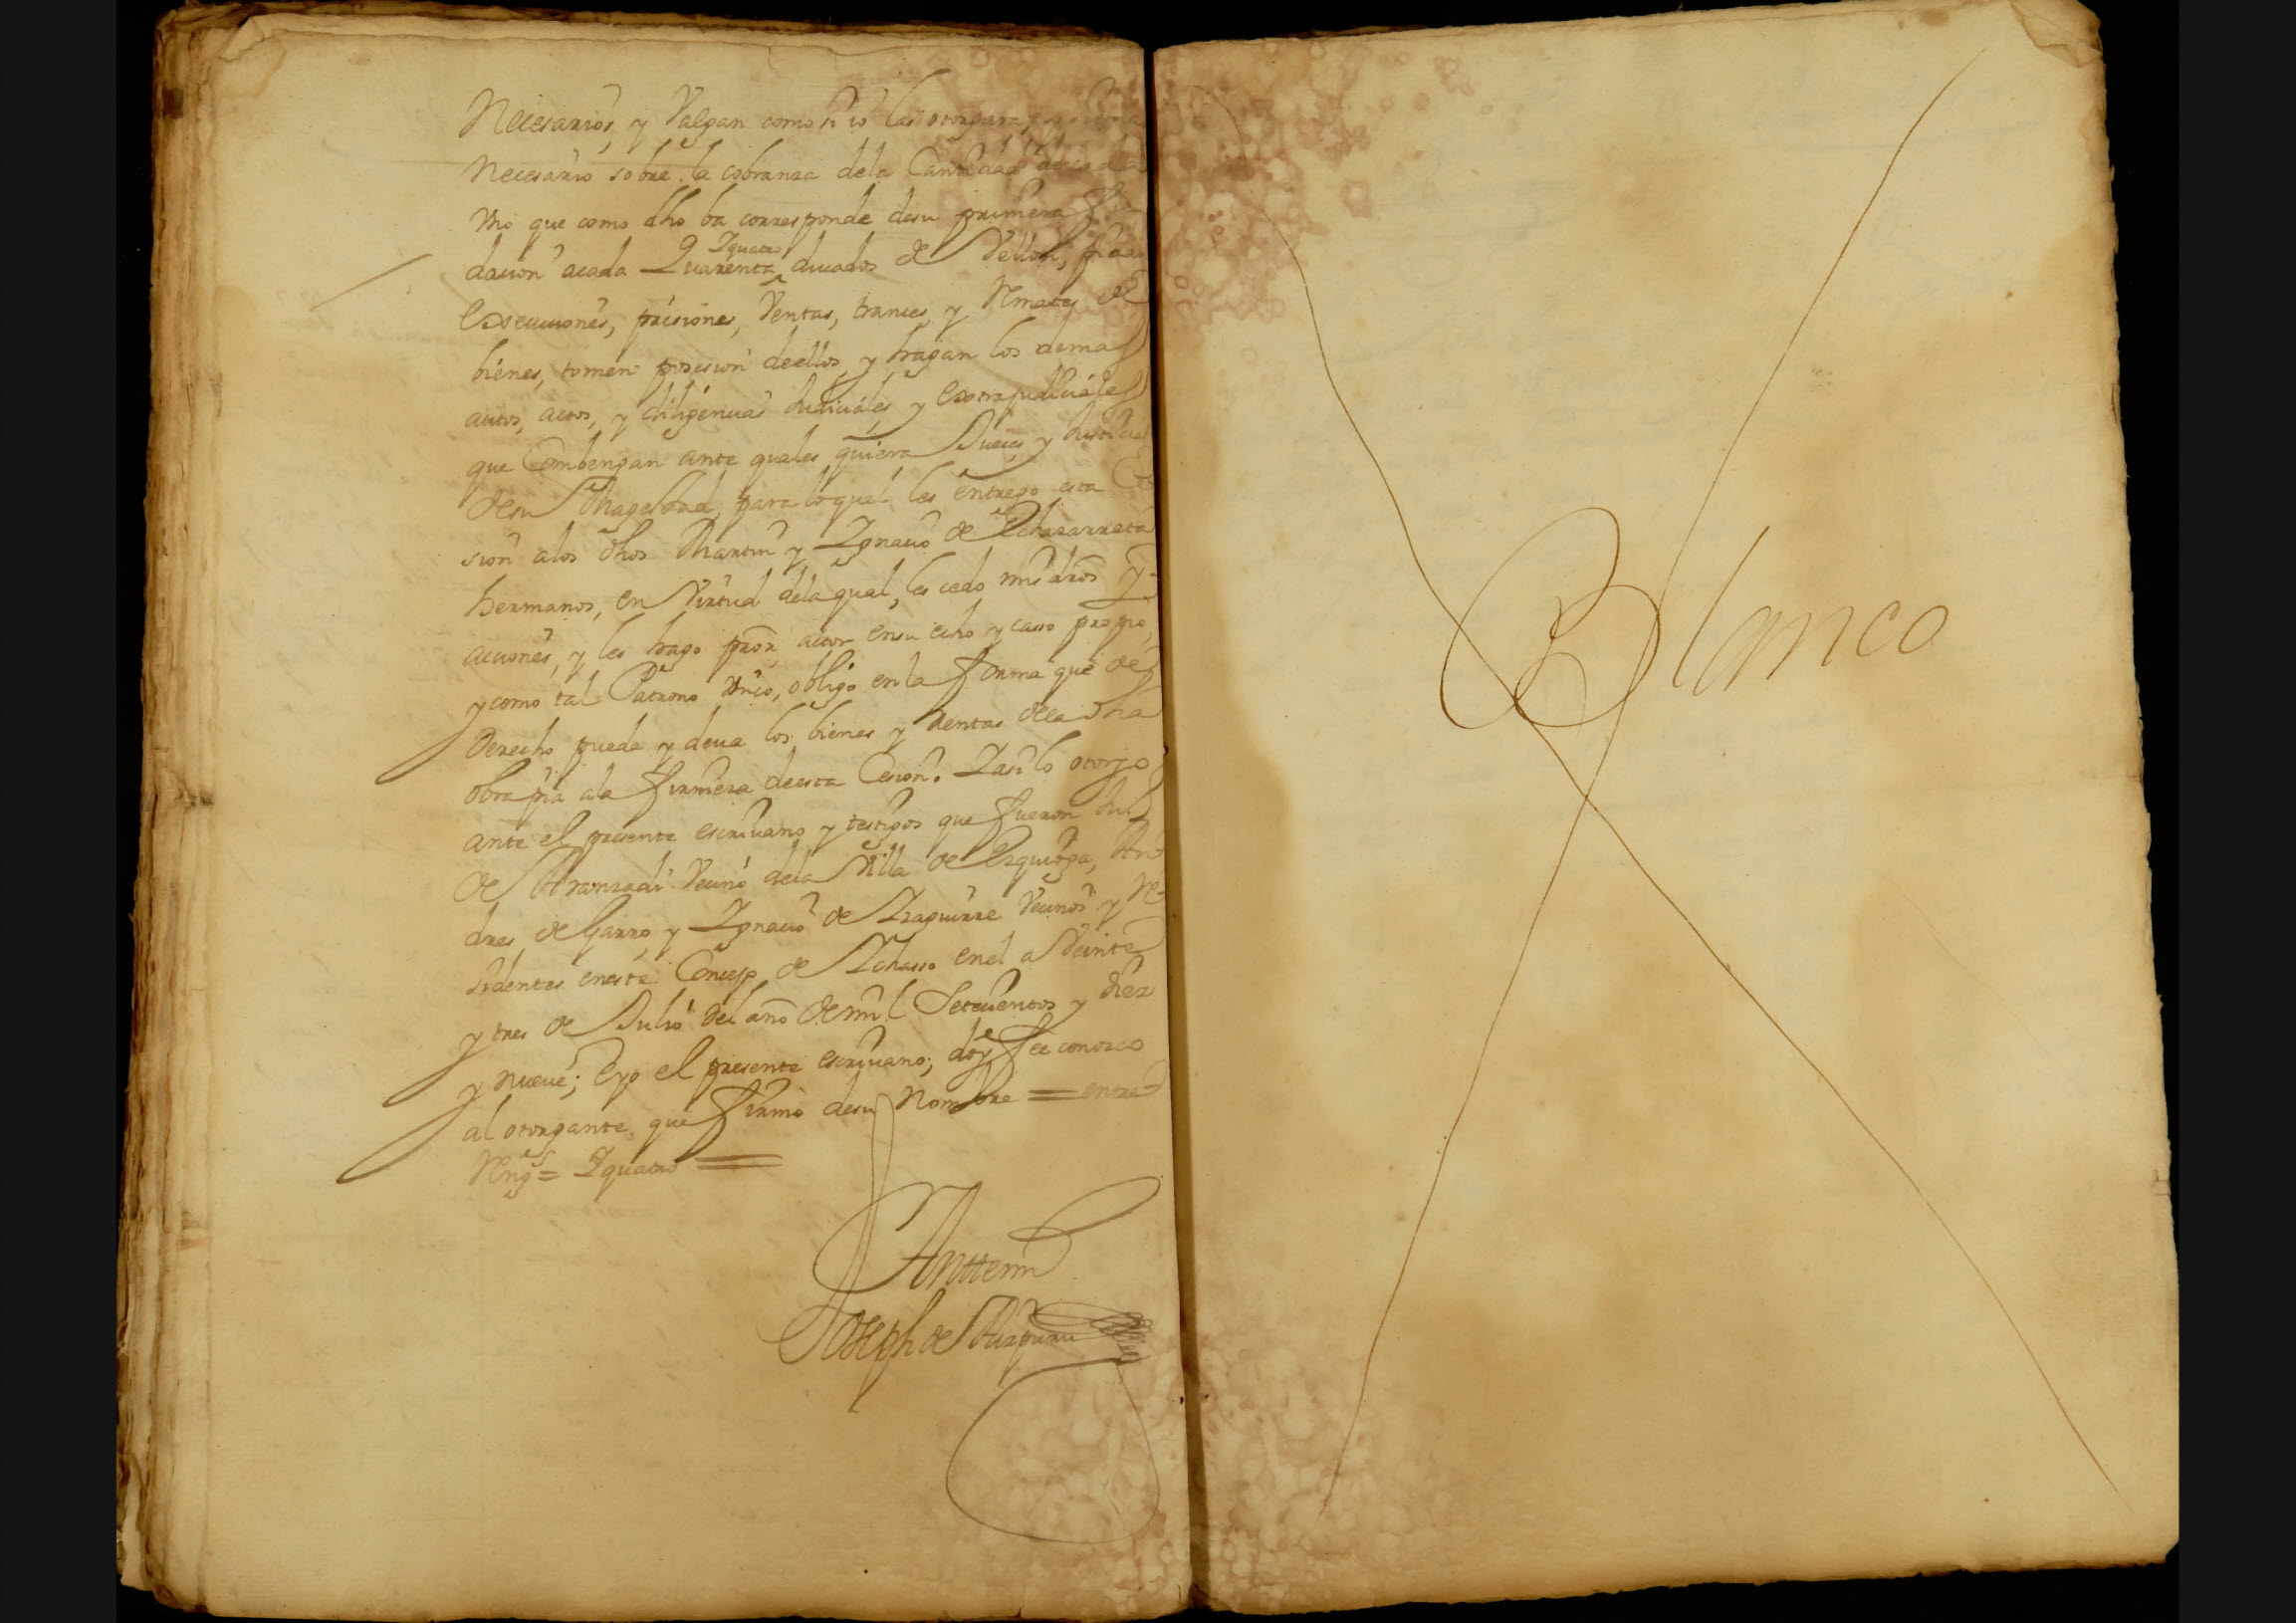 Necesarios, y Valgan como si io las otorgara, y siendo
Necesario sobre la cobranza dela Cantidad de cada
Vno que como dho ba corresponde desu primera fun
dacion acada Quarenta ^Yquatro ducados de Vellon, pidan
Exsecuciones, prisiones, Ventas, trances, y Remates de
bienes, tomen posesion deellos, y hagan los demas
autos, actos, y diligencias Judiciales, y Extrajudiciales
que Combengan ante quales quiera Jueces, y Justicias
desu Magestad, para loqual les entrego esta Ce
sion alos dhos Martin y Ygnacio de Echazarreta
hermanos, en Virtud dela qual, les cedo mis dros y
acciones, y les hago pror, actor ensu echo y casso propio,
y como tal Patrono Vnico, obligo en la forma que de
Derecho pueda y deua los bienes y Rentas dela dha
obra pia ala firmeza deesta Cesion. Yasi lo otorgo
ante el presente escriuano y testigos que fueron Jua
de Aranzadi Vecino dela Villa de Ezquioga, An
dres de Garro, y Ygnacio de Yzaguirre Vecinos y Re
sidentes eneste Concejo de Ychasso enel a Veinte
y tres de Julio del año de mil Setecientos y diez
y nueue; Eyo el presente escriuano; doy fee conozco
al otorgante, que firmo desu Nombre = entre
Rengs = Yquatro =
Antemi
Joseph de Aizpuru
Blanco